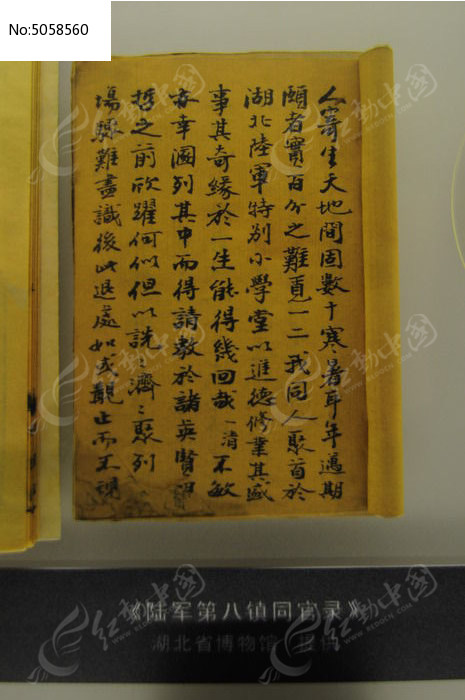 No:5058560
人寄生天地間固數十寒暑耳年邁期
頤者實百分之難覓一二我同人聚首於
湖北陸軍特別小學堂以進德修業其盛
事其奇緣於一生能得幾回哉一清不敏
亦幸園列其中而得請教於諸英賢
哲之前欣躍何似但以詵濟濟聚列
場驟難盡識後此退處如或觀止而不
《陆军第八镇同官录》
湖北省博物馆 提供
红动中国
WWW.REDOCN.COM